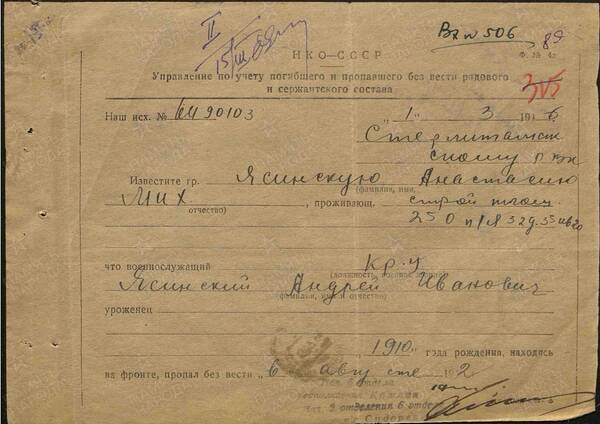 Вх № 506 89
II
15/III
НКО—СССР
Ф. № 4
Управление по учету погибшего и пропавшего без вести рядового
и сержантского состава
315
Наш исх. № 90103 „1" 3 1946
Стерлитамак
скому РВК
Известите гр. Ясинскую Анастасию
(фамилия, имя,
Мих., проживающ. строй площ.
отчество)
250 п/я
что военнослужащий кр-ц
(должность, военное звание,
Ясинский Андрей Иванович
фамилия, имя и отчество)
уроженец
1910 года рождения, находясь
на фронте, пропал без вести „6" августе 1942
Нач. 6 отдела
Нач. 2 отделения 6 отдела